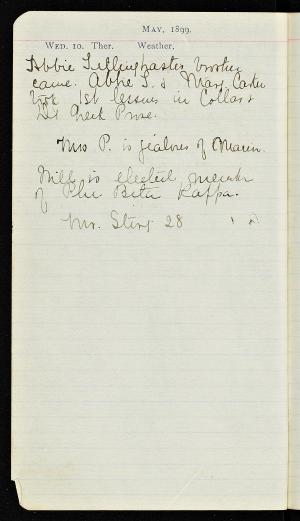 MAY, 1899.
WED. 10. Ther. Weather.
Abbie Tillinghasts brother
came. Abbie S. & Mary Carter
took 1st lessons in Collar &
Greek Prose.
Mrs P. is jealous of
Will is elected member
of Phi Beta Kappa.
Mr. 28